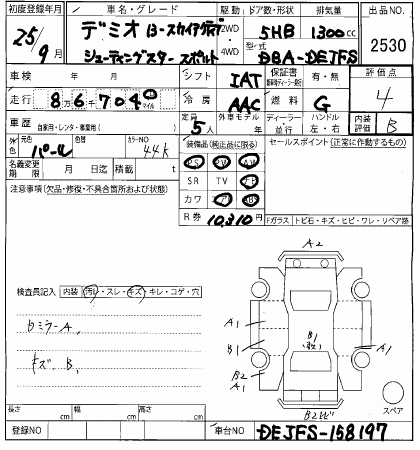 初度登録年月 車名・グレード 駆動 ドア数・形状 排気量 出品NO
25/9月 デミオ 13-スカイアクティブ 2WD 5HB 1300cc 2530
シューティングスター スポルト 4WD 型式 DBA-DEJFS
車検 年 月 シフト IAT 保証書 有・無 評価点
走行 8万6千704 マイル 冷房 AAC 燃料 G 4
車歴 自家用・レンタ・事業用( ) 定員 5人 外車モデル 年 ディーラー・並行 ハンドル 左・右 内装評価 B
外色 元色 パール 色替 カラーNO 44K 装備品(純正品に限る) セールスポイント(正常に作動するもの)
名義変更期限 月 日迄 積載 t PS PW
注意事項(欠品・修復・不具合箇所および状態) SR TV ナビ
カワ AB
R券 10,310円 Fガラス トビ石・キズ・ヒビ・ワレ・リペア跡
A2
検査員記入 内装 汚れ・スレ・キズ キレ・コゲ・穴
A1 B1 A1
ウミラーA,
B1
キズ、B,
B2 A1
スペア
長さ cm 幅 cm 高さ cm
登録NO 車台NO DEJFS-158197